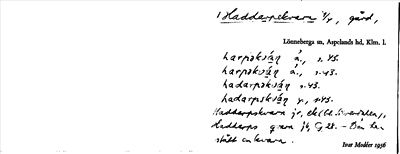 1 Haddarpskvarn 1/4, gård,
Lönneberga sn, Aspelands hd, Klm. l.
harpskván á., s. 45.
harpkván á., s. 43.
hadarpskván s. 45.
hadarpskván y., s. 45.
Haddarpskvarn jr, ek (bl. Silverdalen),
Haddarps qvarn jb, G 28. – Där har
stått en kvarn.
Ivar Modéer 1936